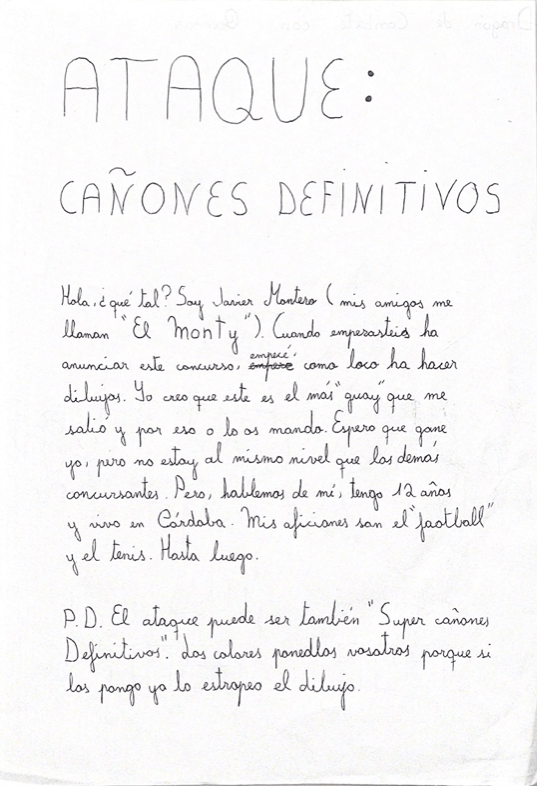 ATAQUE:
CAÑONES DEFINITIVOS
Hola, ¿qué tal? Soy Javier Montero (mis amigos me
llaman "El Monty"). Cuando emperasteis ha
anunciar este concurso, empecé como loco ha hacer
dibujos. Yo creo que este es el más "guay" que me
salió y por eso o lo os mando. Espero que gane
yo, pero no estoy al mismo nivel que los demás
concursantes. Pero, hablemos de mí, tengo 12 años
y vivo en Córdoba. Mis aficiones son el "football"
y el tenis. Hasta luego.
P.D. El ataque puede ser también "Super cañones
Definitivos". Los colores ponedlos vosotros porque si
los pongo yo lo estropeo el dibujo.